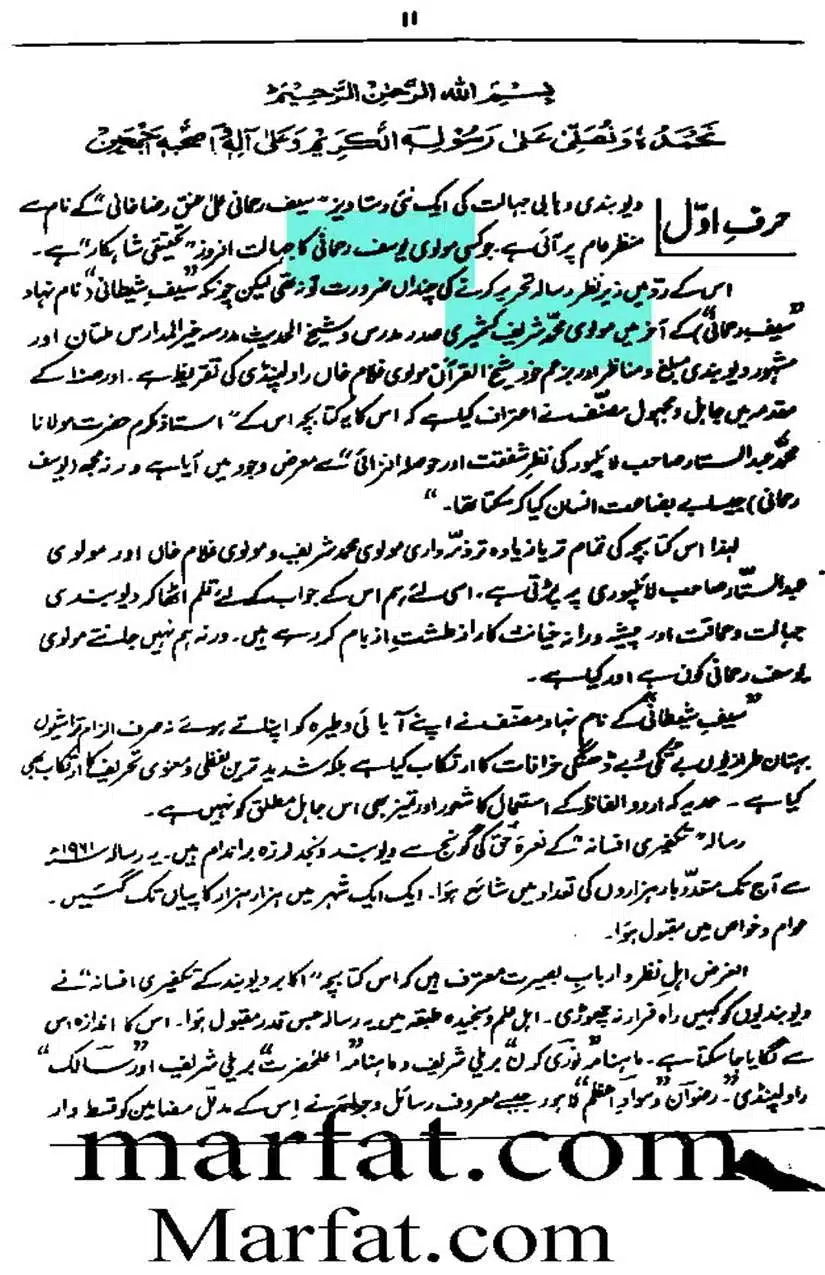 ۱۱
بِسْمِ اللهِ الرَّحْمٰنِ الرَّحِيْمِ
نَحْمَدُهٗ وَنُصَلِّىْ عَلٰى رَسُوْلِهِ الْكَرِيْمِ وَعَلٰى آلِهٖ وَاَصْحٰبِهٖ اَجْمَعِيْنَ
حرفِ اوّل
دیوبندی وہابی جہالت کی ایک نئی دستاویز "سیف رحمانی علیٰ عنق رضاخانی" کے نام سے
منظر عام پر آئی ہے۔ جو کسی مولوی یوسف رحمانی کا جہالت افروز "تحقیقی شاہکار" ہے۔
اس کے ردّ میں زیر نظر رسالہ تحریر کرنے کی چنداں ضرورت تو نہ تھی لیکن چونکہ "سیفِ شیطانی" (نام نہاد
"سیفِ رحمانی") کے آخر میں مولوی محمد شریف کشمیری صدر مدرس و شیخ الحدیث مدرسہ خیر المدارس ملتان اور
مشہور دیوبندی مبلغ و مناظر اور بزعم خود شیخ القرآن مولوی غلام خاں راولپنڈی کی تقریظ ہے۔ اور صدا کے
مقدمہ میں جاہل و مجہول مصنّف نے اعتراف کیا ہے کہ اس کا یہ کتابچہ اس کے "استاذ مکرم حضرت مولانا
محمد عبدالستار صاحب لائلپور کی نظر شفقت اور حوصلہ افزائی" سے معرض وجود میں آیا ہے ورنہ مجھ (یوسف
رحمانی) جیسا بے بضاعت انسان کیا کر سکتا تھا۔"
لہٰذا اس کتابچہ کی تمام تر یا زیادہ تر ذمّہ داری مولوی محمد شریف و مولوی غلام خاں اور مولوی
عبدالستّار صاحب لائلپوری پر پڑتی ہے۔ اسی لئے ہم اس کے جواب کے لئے قلم اٹھا کر دیوبندی
جہالت و حماقت اور پیشہ ورانہ خیانت کا راز طشت از بام کر رہے ہیں۔ ورنہ ہم نہیں جانتے مولوی
یوسف رحمانی کون ہے اور کیا ہے۔
"سیفِ شیطانی" کے نام نہاد مصنف نے اپنے آبائی وطیرہ کو اپناتے ہوئے نہ صرف الزام تراشیوں
بہتان طرازیوں بے تکی بے ڈھنگی خرافات کا ارتکاب کیا ہے بلکہ شدید ترین لفظی و معنوی تحریف کا ارتکاب بھی
کیا ہے۔ حد یہ کہ اردو الفاظ کے استعمال کا شعور اور تمیز بھی اس جاہل مطلق کو نہیں ہے۔
رسالہ "تکفیری افسانہ" کے نعرۂ حق کی گونج سے دیوبند و نجد لرزہ براندام ہیں۔ یہ رسالہ ۱۹۶۱ء
سے آج تک متعدّد بار ہزاروں کی تعداد میں شائع ہوا۔ ایک ایک شہر میں ہزار ہزار کاپیاں تک گئیں۔
عوام و خواص میں مقبول ہوا۔
الغرض اہلِ نظر و اربابِ بصیرت معترف ہیں کہ اس کتابچہ "اکابر دیوبند کے تکفیری افسانہ" نے
دیوبندیوں کو کہیں راہ فرار نہ چھوڑی۔ اہل علم و سنجیدہ طبقہ میں یہ رسالہ جس قدر مقبول ہوا۔ اس کا اندازہ اس
سے لگایا جا سکتا ہے۔ ماہنامہ "نوری کرن" بریلی شریف و ماہنامہ "اعلحضرت" بریلی شریف اور "سالک"
راولپنڈی۔ "رضوان" و "سوادِ اعظم" لاہور جیسے معروف رسائل و جرائد نے اس کے مدلّل مضامین کو قسط وار
marfat.com
Marfat.com